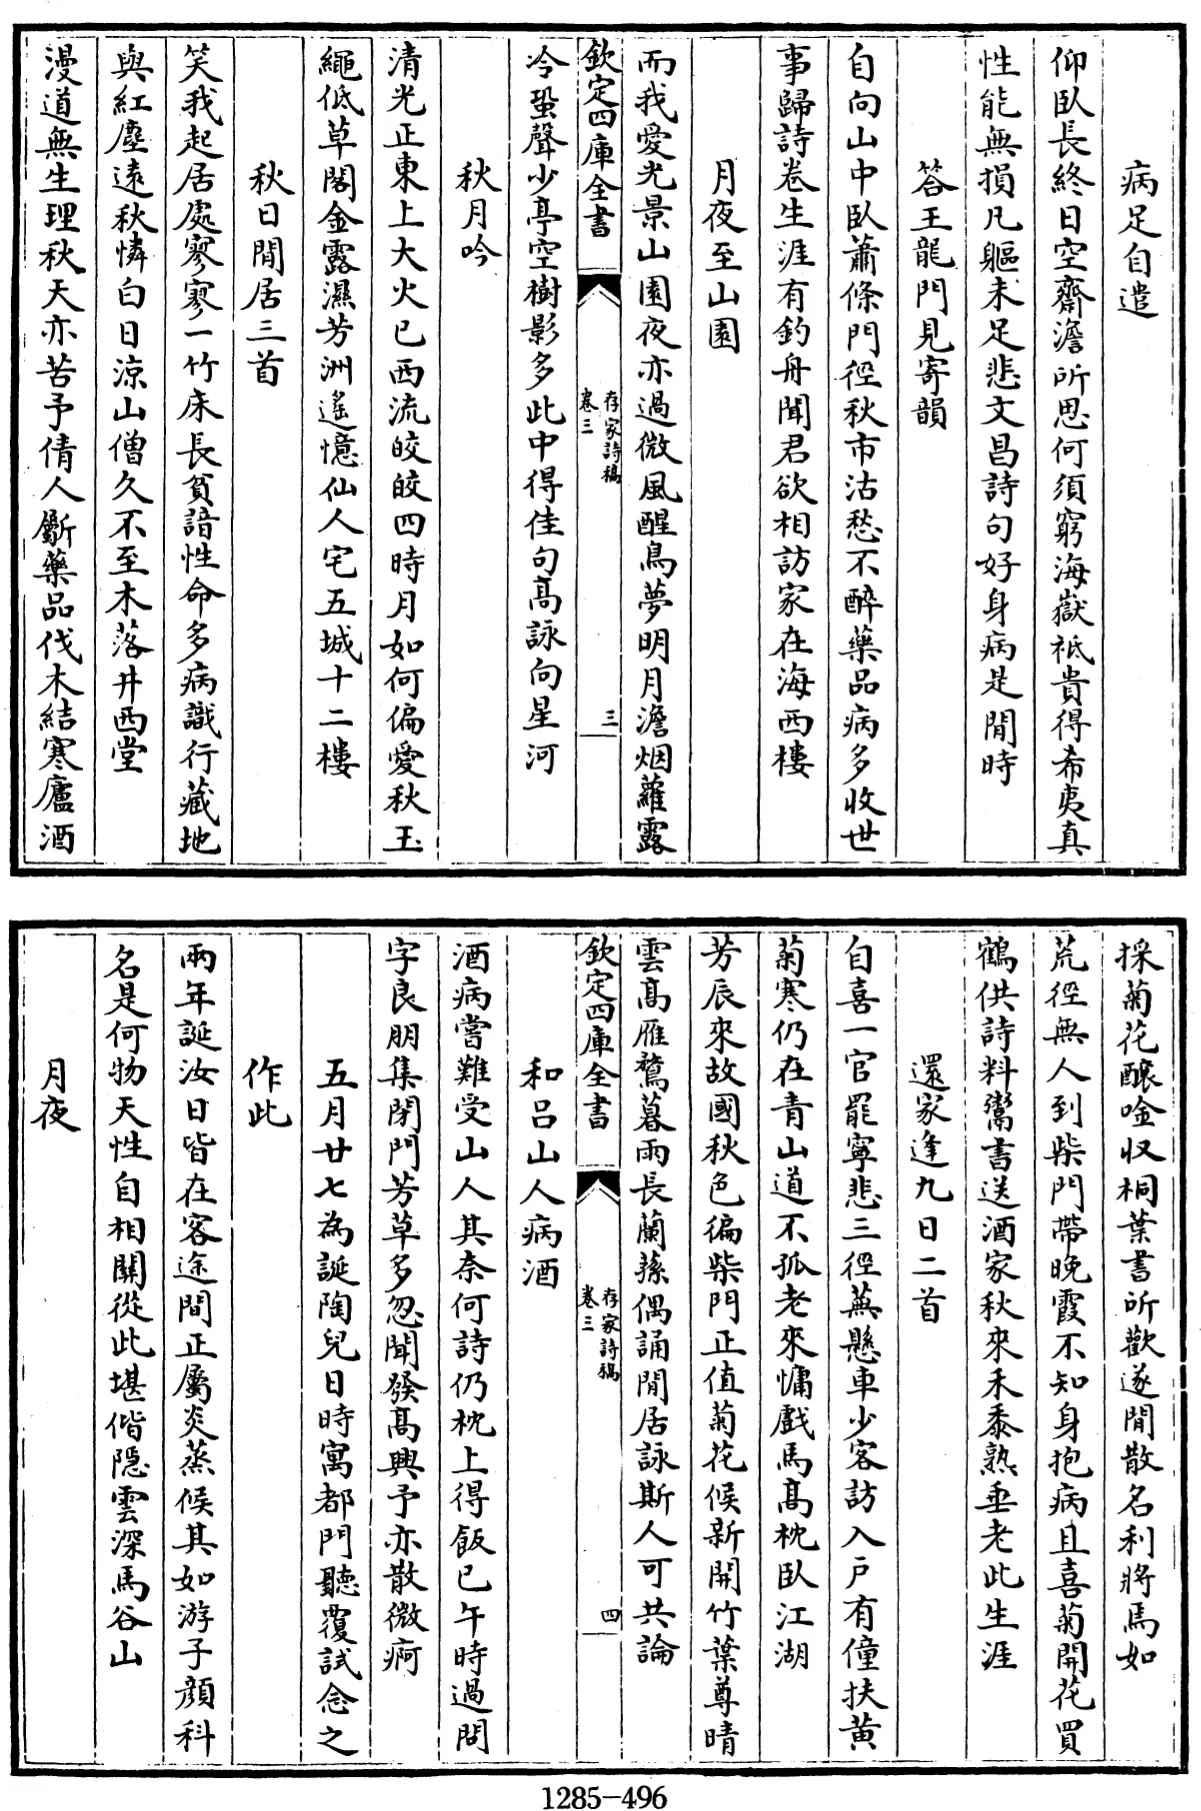 病足自遣
仰臥長終日空齋澹所思何須窮海嶽祗貴得希夷真
性能無損凡軀未足悲文昌詩句好身病是閒時
答王龍門見寄韻
自向山中臥蕭條門徑秋市沽愁不醉藥品病多收世
事歸詩卷生涯有釣舟聞君欲相訪家在海西樓
月夜至山園
而我愛光景山園夜亦過微風醒鳥夢明月澹烟蘿露
欽定四庫全書
存家詩稿
卷三
三
冷蛩聲少亭空樹影多此中得佳句高詠向星河
秋月吟
清光正東上大火已西流皎皎四時月如何偏愛秋玉
繩低草閣金露濕芳洲遙憶仙人宅五城十二樓
秋日閒居三首
笑我起居處寥寥一竹床長貧諳性命多病識行藏地
與紅塵遠秋憐白日涼山僧久不至木落井西堂
漫道無生理秋天亦苦予倩人斸藥品伐木結寒廬酒
採菊花釀唫収桐葉書所歡遂閒散名利將焉如
荒徑無人到柴門帶晚霞不知身抱病且喜菊開花買
鶴供詩料鬻書送酒家秋來禾黍熟垂老此生涯
還家逢九日二首
自喜一官罷寧悲三徑蕪懸車少客訪入戶有僮扶黄
菊寒仍在青山道不孤老來慵戲馬高枕臥江湖
芳辰來故國秋色徧柴門正值菊花候新開竹葉尊晴
雲高雁鶩暮雨長蘭蓀偶誦閒居詠斯人可共論
欽定四庫全書
存家詩稿
卷三
四
和呂山人病酒
酒病嘗難受山人其奈何詩仍枕上得飯已午時過問
字良朋集閉門芳草多忽聞發高興予亦散微痾
五月廿七為誕陶兒日時寓都門聽覆試念之
作此
兩年誕汝日皆在客途間正屬炎蒸候其如游子顔科
名是何物天性自相關從此堪偕隱雲深馬谷山
月夜
1285-496